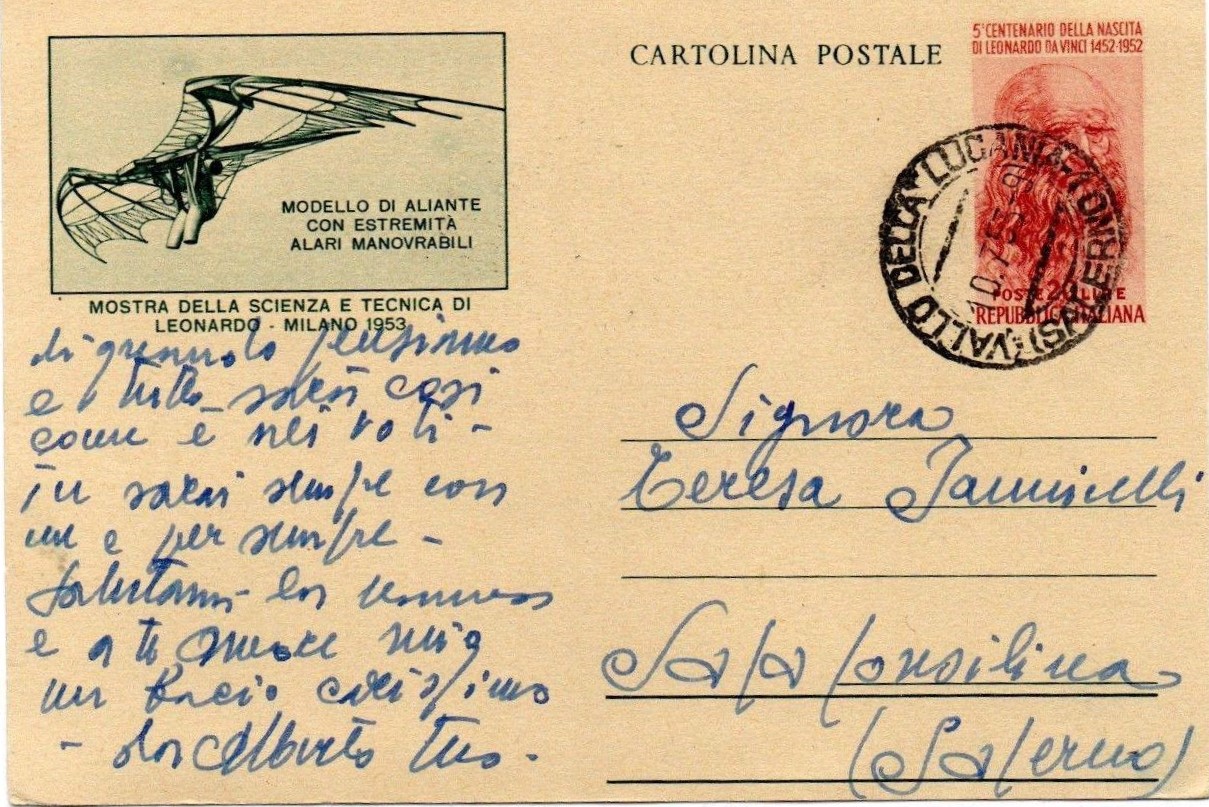 CARTOLINA POSTALE
5° CENTENARIO DELLA NASCITA
DI LEONARDO DA VINCI 1452-1952
POSTE 20 LIRE
REPUBBLICA ITALIANA
VALLO DELLA LUCANIA (SALERNO)
MODELLO DI ALIANTE
CON ESTREMITÀ
ALARI MANOVRABILI
MOSTRA DELLA SCIENZA E TECNICA DI
LEONARDO - MILANO 1953
di quanto pensiamo
e tutto sarà così
come è nei voti -
Tu sarai sempre con
me e per sempre -
e a te amore mio
un bacio carissimo
Alberto tuo -
Signora
Teresa
Sala Consilina
(Salerno)